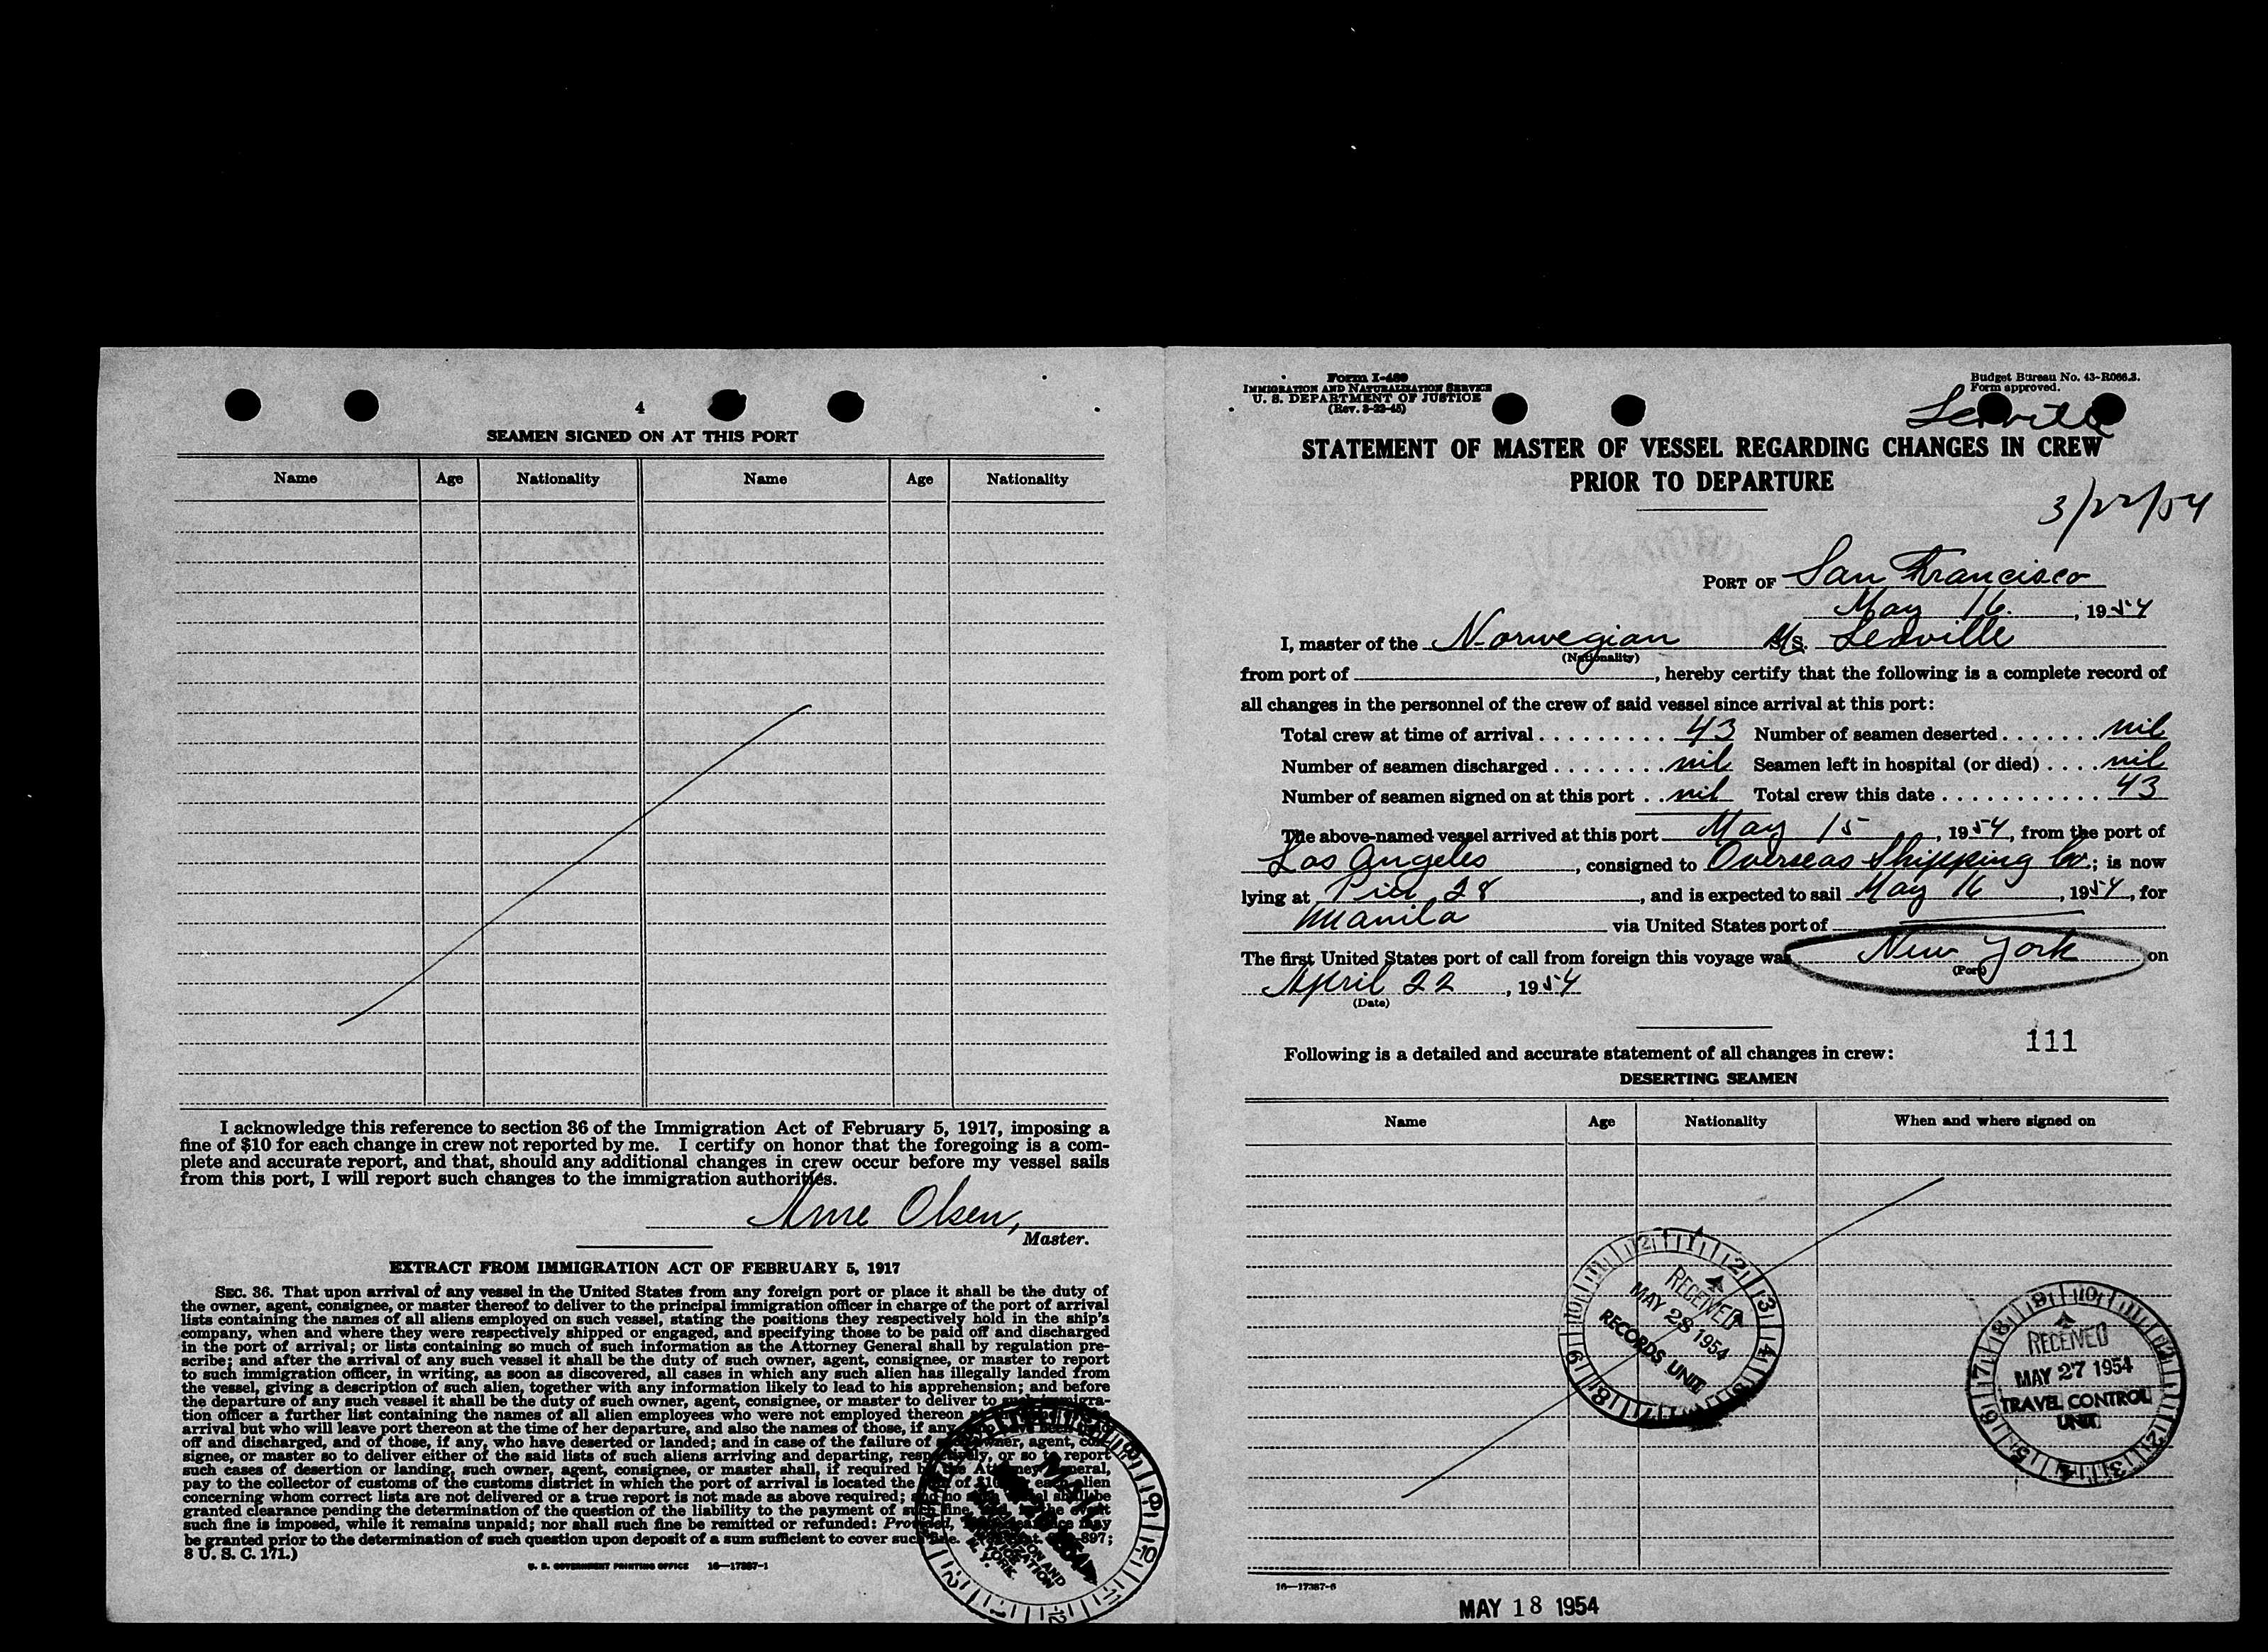 4
SEAMEN SIGNED ON AT THIS PORT
Name Age Nationality Name Age Nationality
I acknowledge this reference to section 36 of the Immigration Act of February 5, 1917, imposing a
fine of $10 for each change in crew not reported by me. I certify on honor that the foregoing is a com-
plete and accurate report, and that, should any additional changes in crew occur before my vessel sails
from this port, I will report such changes to the immigration authorities.
Arne Olsen,
Master.
EXTRACT FROM IMMIGRATION ACT OF FEBRUARY 5, 1917
SEC. 36. That upon arrival of any vessel in the United States from any foreign port or place it shall be the duty of
the owner, agent, consignee, or master thereof to deliver to the principal immigration officer in charge of the port of arrival
lists containing the names of all aliens employed on such vessel, stating the positions they respectively hold in the ship's
company, when and where they were respectively shipped or engaged, and specifying those to be paid off and discharged
in the port of arrival; or lists containing so much of such information as the Attorney General shall by regulation pre-
scribe; and after the arrival of any such vessel it shall be the duty of such owner, agent, consignee, or master to report
to such immigration officer, in writing, as soon as discovered, all cases in which any such alien has illegally landed from
the vessel, giving a description of such alien, together with any information likely to lead to his apprehension; and before
the departure of any such vessel it shall be the duty of such owner, agent, consignee, or master to deliver to such immigra-
tion officer a further list containing the names of all alien employees who were not employed thereon
arrival but who will leave port thereon at the time of her departure, and also the names of those, if any,
off and discharged, and of those, if any, who have deserted or landed; and in case of the failure of owner, agent, con-
signee, or master so to deliver either of the said lists of such aliens arriving and departing, respectively, or so to report
such cases of desertion or landing, such owner, agent, consignee, or master shall, if required by the Attorney General,
pay to the collector of customs of the customs district in which the port of arrival is located the of $10 each alien
concerning whom correct lists are not delivered or a true report is not made as above required; and no shall be
granted clearance pending the determination of the question of the liability to the payment of such fine, the event
such fine is imposed, while it remains unpaid; nor shall such fine be remitted or refunded: Provided, may
be granted prior to the determination of such question upon deposit of a sum sufficient to cover such fine. 897;
8 U. S. C. 171.)
U. S. GOVERNMENT PRINTING OFFICE 16—17387-1
Form I-489
IMMIGRATION AND NATURALIZATION SERVICE
U. S. DEPARTMENT OF JUSTICE
(Rev. 3-22-45)
Budget Bureau No. 43-R066.3.
Form approved.
STATEMENT OF MASTER OF VESSEL REGARDING CHANGES IN CREW
PRIOR TO DEPARTURE
3/22/54
PORT OF San Francisco
May 16., 1954
I, master of the Norwegian M/S. Leoville
(Nationality)
from port of , hereby certify that the following is a complete record of
all changes in the personnel of the crew of said vessel since arrival at this port:
Total crew at time of arrival . . . . . . . . . 43 Number of seamen deserted . . . . . . . nil
Number of seamen discharged . . . . . . . . nil Seamen left in hospital (or died) . . . . nil
Number of seamen signed on at this port . . nil Total crew this date . . . . . . . . . . . . 43
The above-named vessel arrived at this port May 15, 1954, from the port of
Los Angeles, consigned to Overseas Shipping Co.; is now
lying at Pier 28, and is expected to sail May 16, 1954, for
Manila via United States port of
The first United States port of call from foreign this voyage was New York on
(Port)
April 22, 1954
(Date)
111
Following is a detailed and accurate statement of all changes in crew:
DESERTING SEAMEN
Name Age Nationality When and where signed on
RECEIVED
MAY 28 1954
RECORDS UNIT
RECEIVED
MAY 27 1954
TRAVEL CONTROL
UNIT
16—17387-6
MAY 18 1954